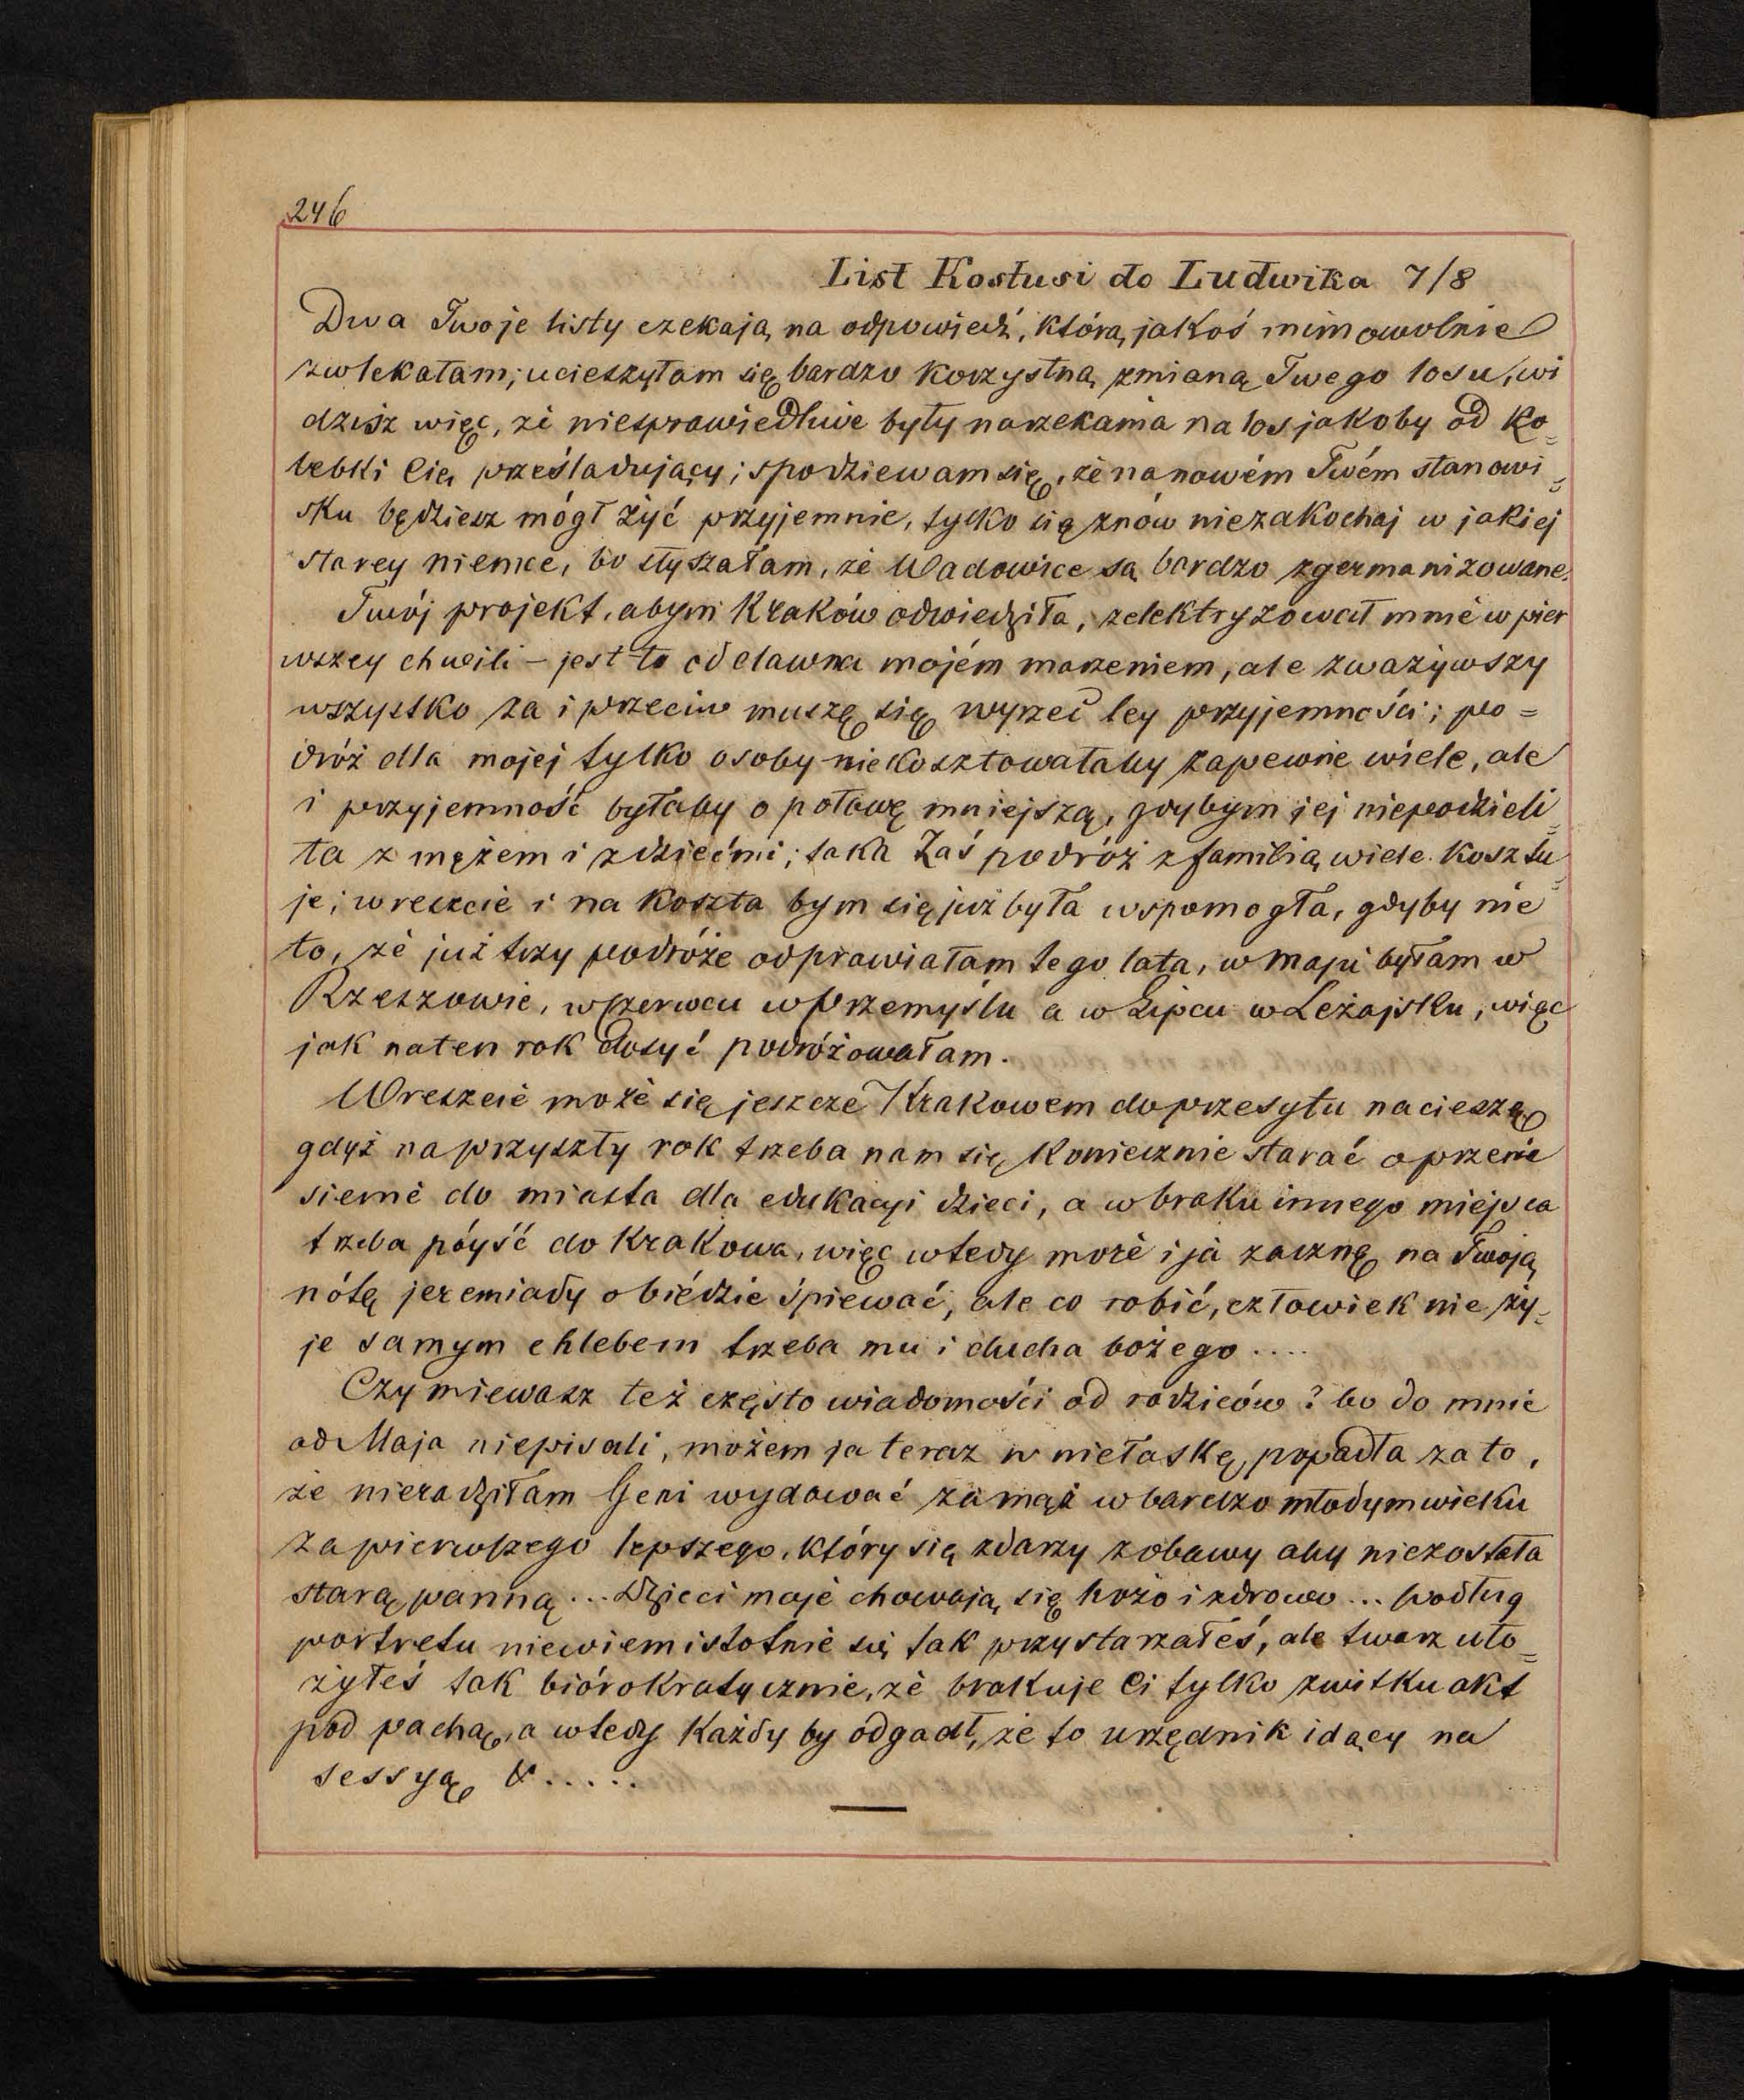 246
List Kostusi do Ludwika 7/8
Dwa Twoje listy czekają na odpowiedź, którą jakoś mimowolnie
zwlekałam; ucieszyłam się bardzo korzystną zmianą Twego losu, wi
dzisz więc, że niesprawiedliwe były narzekania na los jakoby od ko=
lebki Cię prześladujący; spodziewam się, że na nowém Twém stanowi=
sku będziesz mógł żyć przyjemnie, tylko się znów niezakochaj w jakiej
starey niemce, bo słyszałam, że Wadowice są bardzo zgermanizowane.
Twój projekt, abym Kraków odwiedziła, zelektryzował mnie w pier
wszey chwili – jest to oddawna mojém marzeniem, ale zważywszy
wszystko za i przeciw muszę się wyrzec tey przyjemności; po=
dróż dla mojej tylko osoby niekosztowałaby zapewne wiele, ale
i przyjemność byłaby o połowę mniejszą, gdybym jej niepodzieli=
ła z mężem i z dziećmi; taka zaś podróż z familią wiele kosztu=
je; wreszcie i na koszta bym się już była wspomogła, gdyby nie
to, że już trzy podróże odprawiałam tego lata, w maju byłam w
Rzeszowie, w czerwcu w Przemyślu a w Lipcu w Leżajsku, więc
jak na ten rok dosyć podróżowałam.
Wreszcie może się jeszcze Krakowem do przesytu nacieszę
gdyż na przyszły rok trzeba nam się koniecznie starać o przenie
sienie do miasta dla edukacyi dzieci, a w braku innego miejsca
trzeba póyść do Krakowa, więc wtedy może i ja zacznę na Twoją
nótę jeremiady o biédzie śpiewać, ale co robić, człowiek nie ży=
je samym chlebem trzeba mu i ducha bożego ....
Czy miewasz też często wiadomości od rodziców? bo do mnie
od Maja niepisali, możem ja teraz w niełaskę popadła za to,
że nieradziłam Geni wydawać za mąż w bardzo młodym wieku
za pierwszego lepszego, który się zdarzy z obawy aby niezostała
starą panną ... Dzieci moje chowają się hożo i zdrowo ... podług
portretu niewiem istotnie się tak przystarzałeś, ale twarz uło=
żyłeś tak biórokratycznie, że brakuje Ci tylko zwitku akt
pod pachą, a wtedy każdy by odgadł, że to urzędnik idący na
sessyą &.....